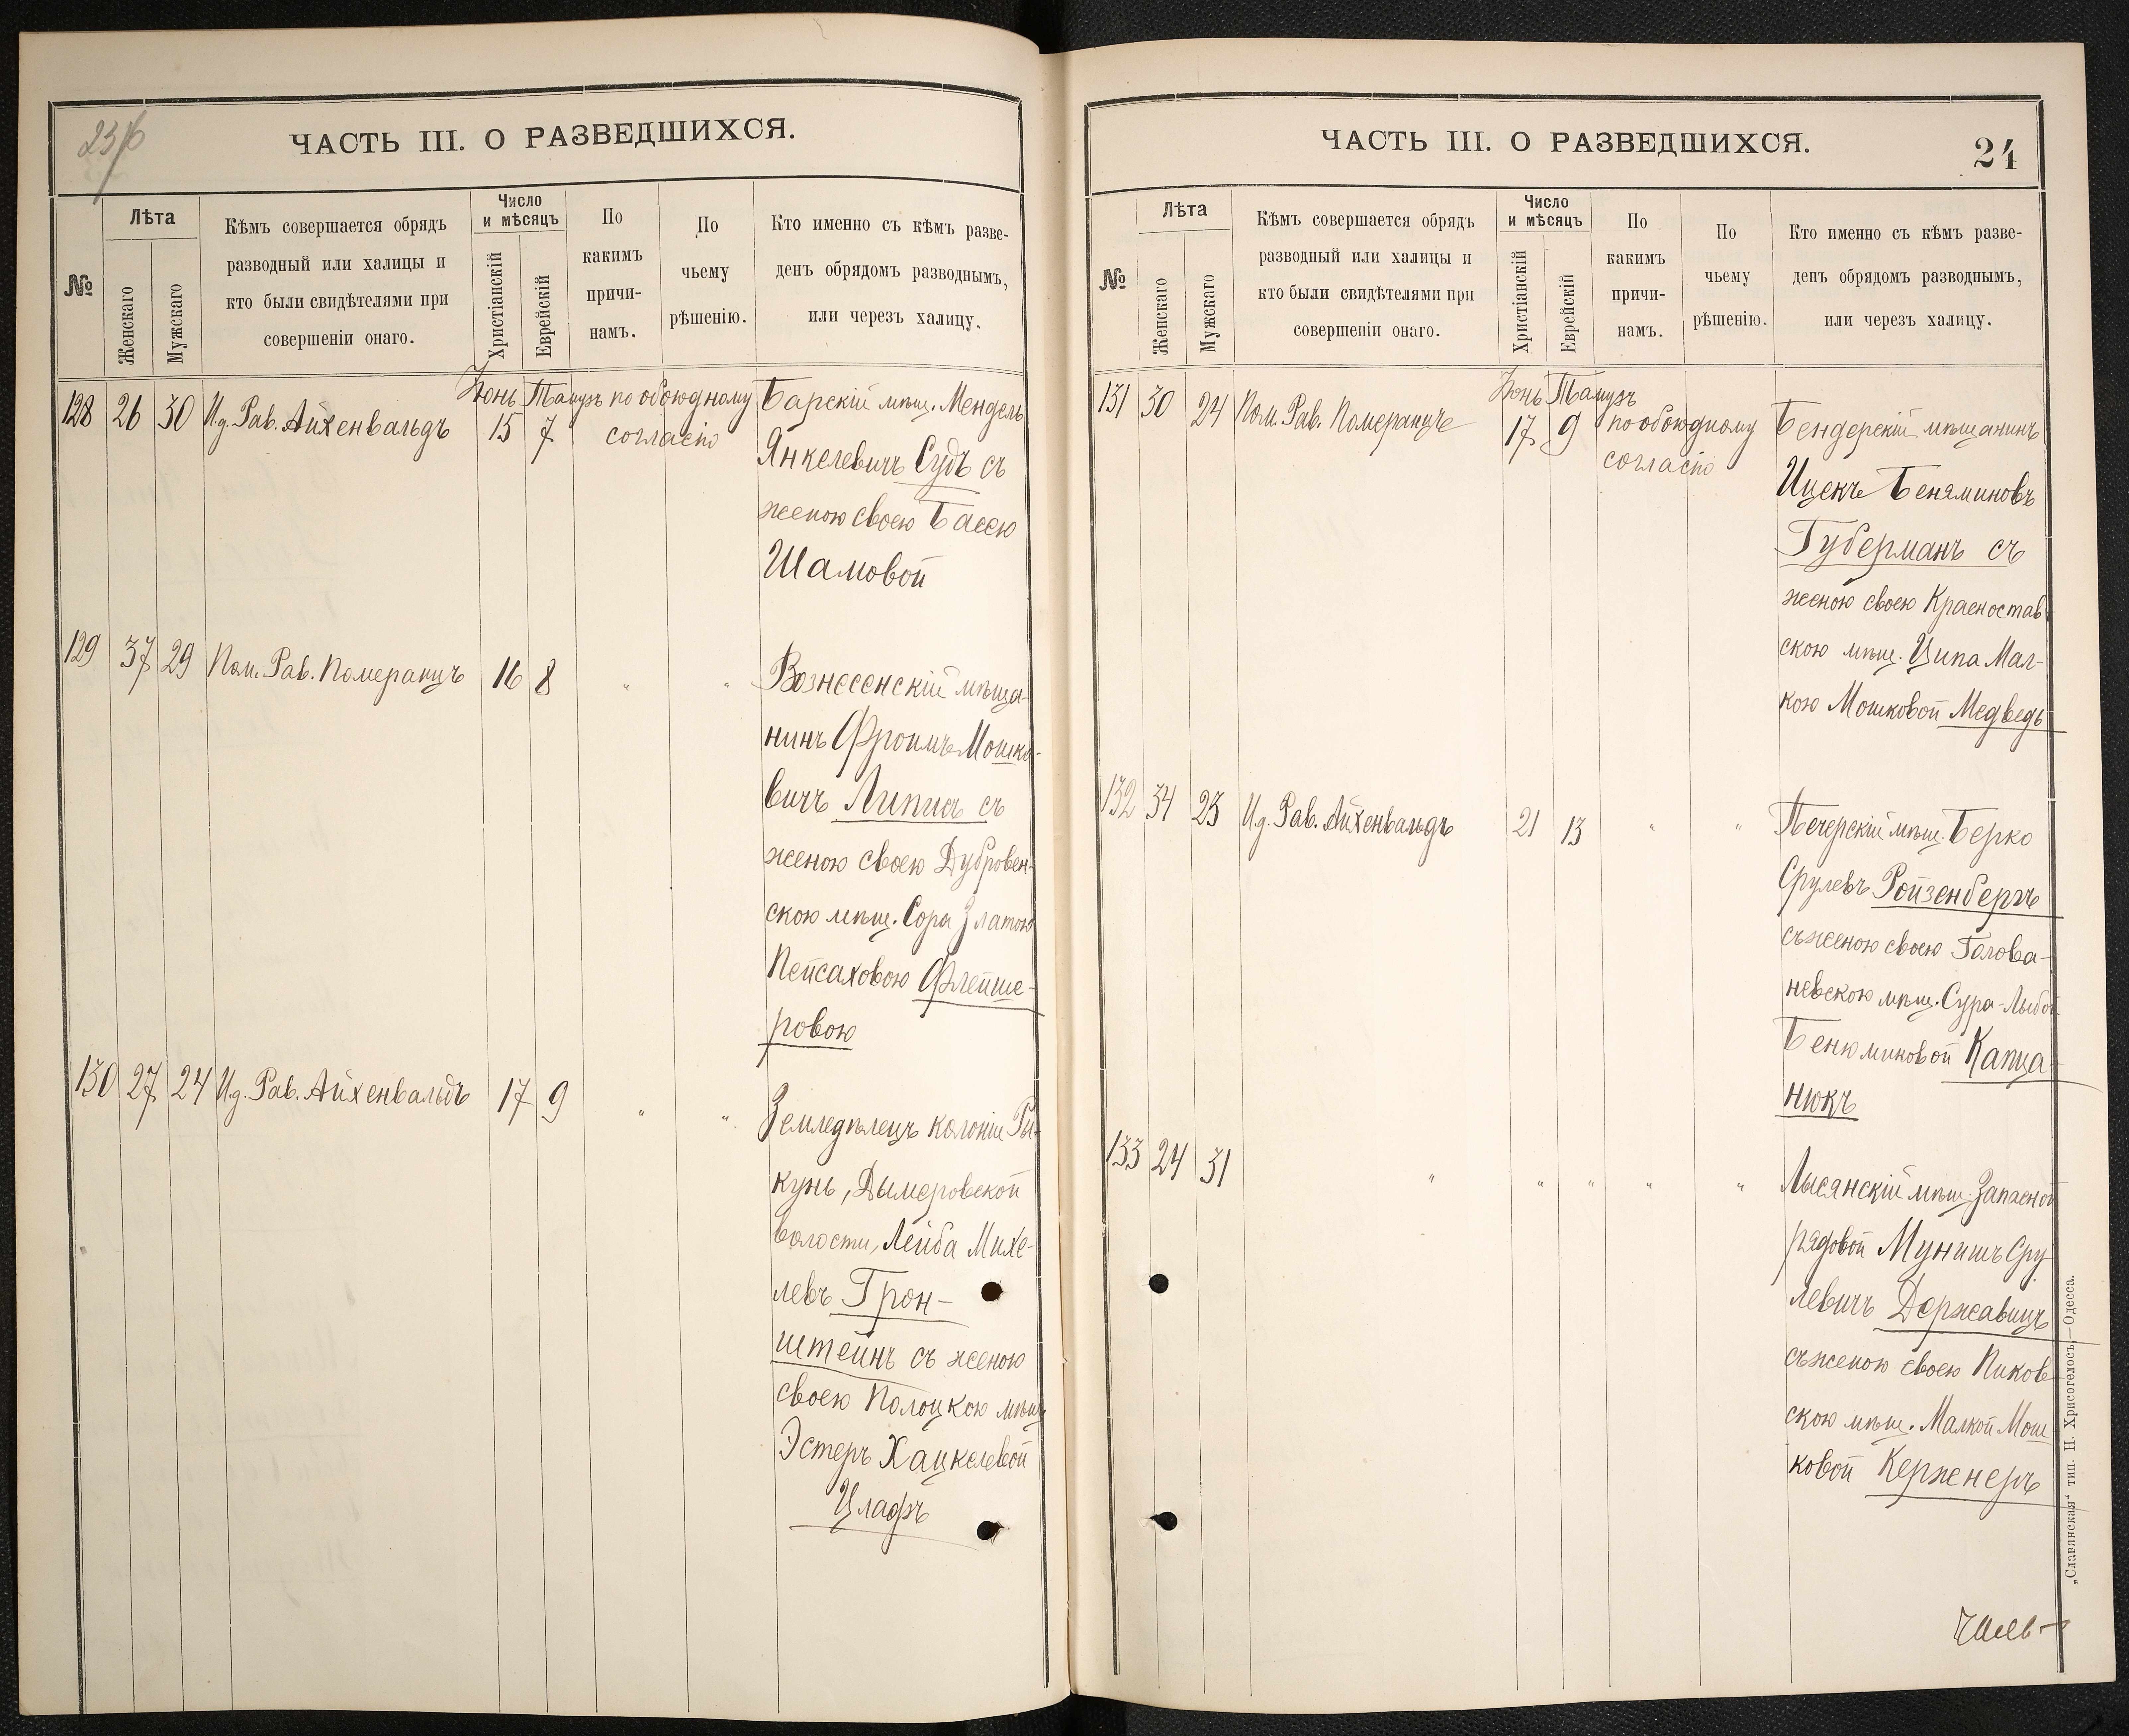 ЧАСТЬ III. О РАЗВЕДШИХСЯ.
№
Лѣта
Женскаго
Мужскаго
Кѣмъ совершается обрядъ
разводный или халицы и
кто были свидѣтелями при
совершеніи онаго.
Число
и мѣсяцъ
Христіанскій
Еврейскій
По
какимъ
причи-
намъ.
По
чьему
рѣшенію.
Кто именно съ кѣмъ разве-
денъ обрядомъ разводнымъ,
или черезъ халицу.
Іюнь Тамузъ по обоюдному Барскій мѣщ. Мендель
128 26 30 И.д. Рав. Айхенвальдъ 15 7 согласію
Янкелевичъ Судъ съ
женою своею Басею
Шамовой
129 37 29 Пом. Рав. Померанцъ 16 8 " " Вознесенскій мѣща-
нинъ Фроимъ Мошко-
вичъ Липисъ съ
женою своею Дубровен-
скою мѣщ. Сора Златою
Пейсаховою Флейше-
ровою
130 27 24 И.д. Рав. Айхенвальдъ 17 9 " " Земледѣлецъ колоніи Ры-
кунь, Дымеровской
волости, Лейба Михе-
левъ Грон-
штейнъ съ женою
своею Полоцкою мѣщ.
Эстеръ Хацкелевой
Цлафъ
ЧАСТЬ III. О РАЗВЕДШИХСЯ.
24
№
Лѣта
Женскаго
Мужскаго
Кѣмъ совершается обрядъ
разводный или халицы и
кто были свидѣтелями при
совершеніи онаго.
Число
и мѣсяцъ
Христіанскій
Еврейскій
По
какимъ
причи-
намъ.
По
чьему
рѣшенію.
Кто именно съ кѣмъ разве-
денъ обрядомъ разводнымъ,
или черезъ халицу.
Іюнь Тамузъ
131 30 24 Пом. Рав. Померанцъ 17 9 по обоюдному Бендерскій мѣщанинъ
согласію
Ицекъ Беняминовъ
Губерманъ съ
женою своею Красностав-
скою мѣщ. Ципа Мал-
кою Мошковой Медведь
132 34 23 И.д. Рав. Айхенвальдъ 21 13 " " Печерскій мѣщ. Берко
Срулевъ Ройзенбергъ
съ женою своею Голова-
невскою мѣщ. Сура-Лыбой
Бенюминовой Капца-
нюкъ
133 24 31 " " " " " Лысянскій мѣщ. Запасной
рядовой Мунишъ Сру-
левичъ Державицъ
съ женою своею Пиков-
скою мѣщ. Малкой Мош-
ковой Керженеръ
„Славянская“ тип. Н. Хрисогелосъ,—Одесса.